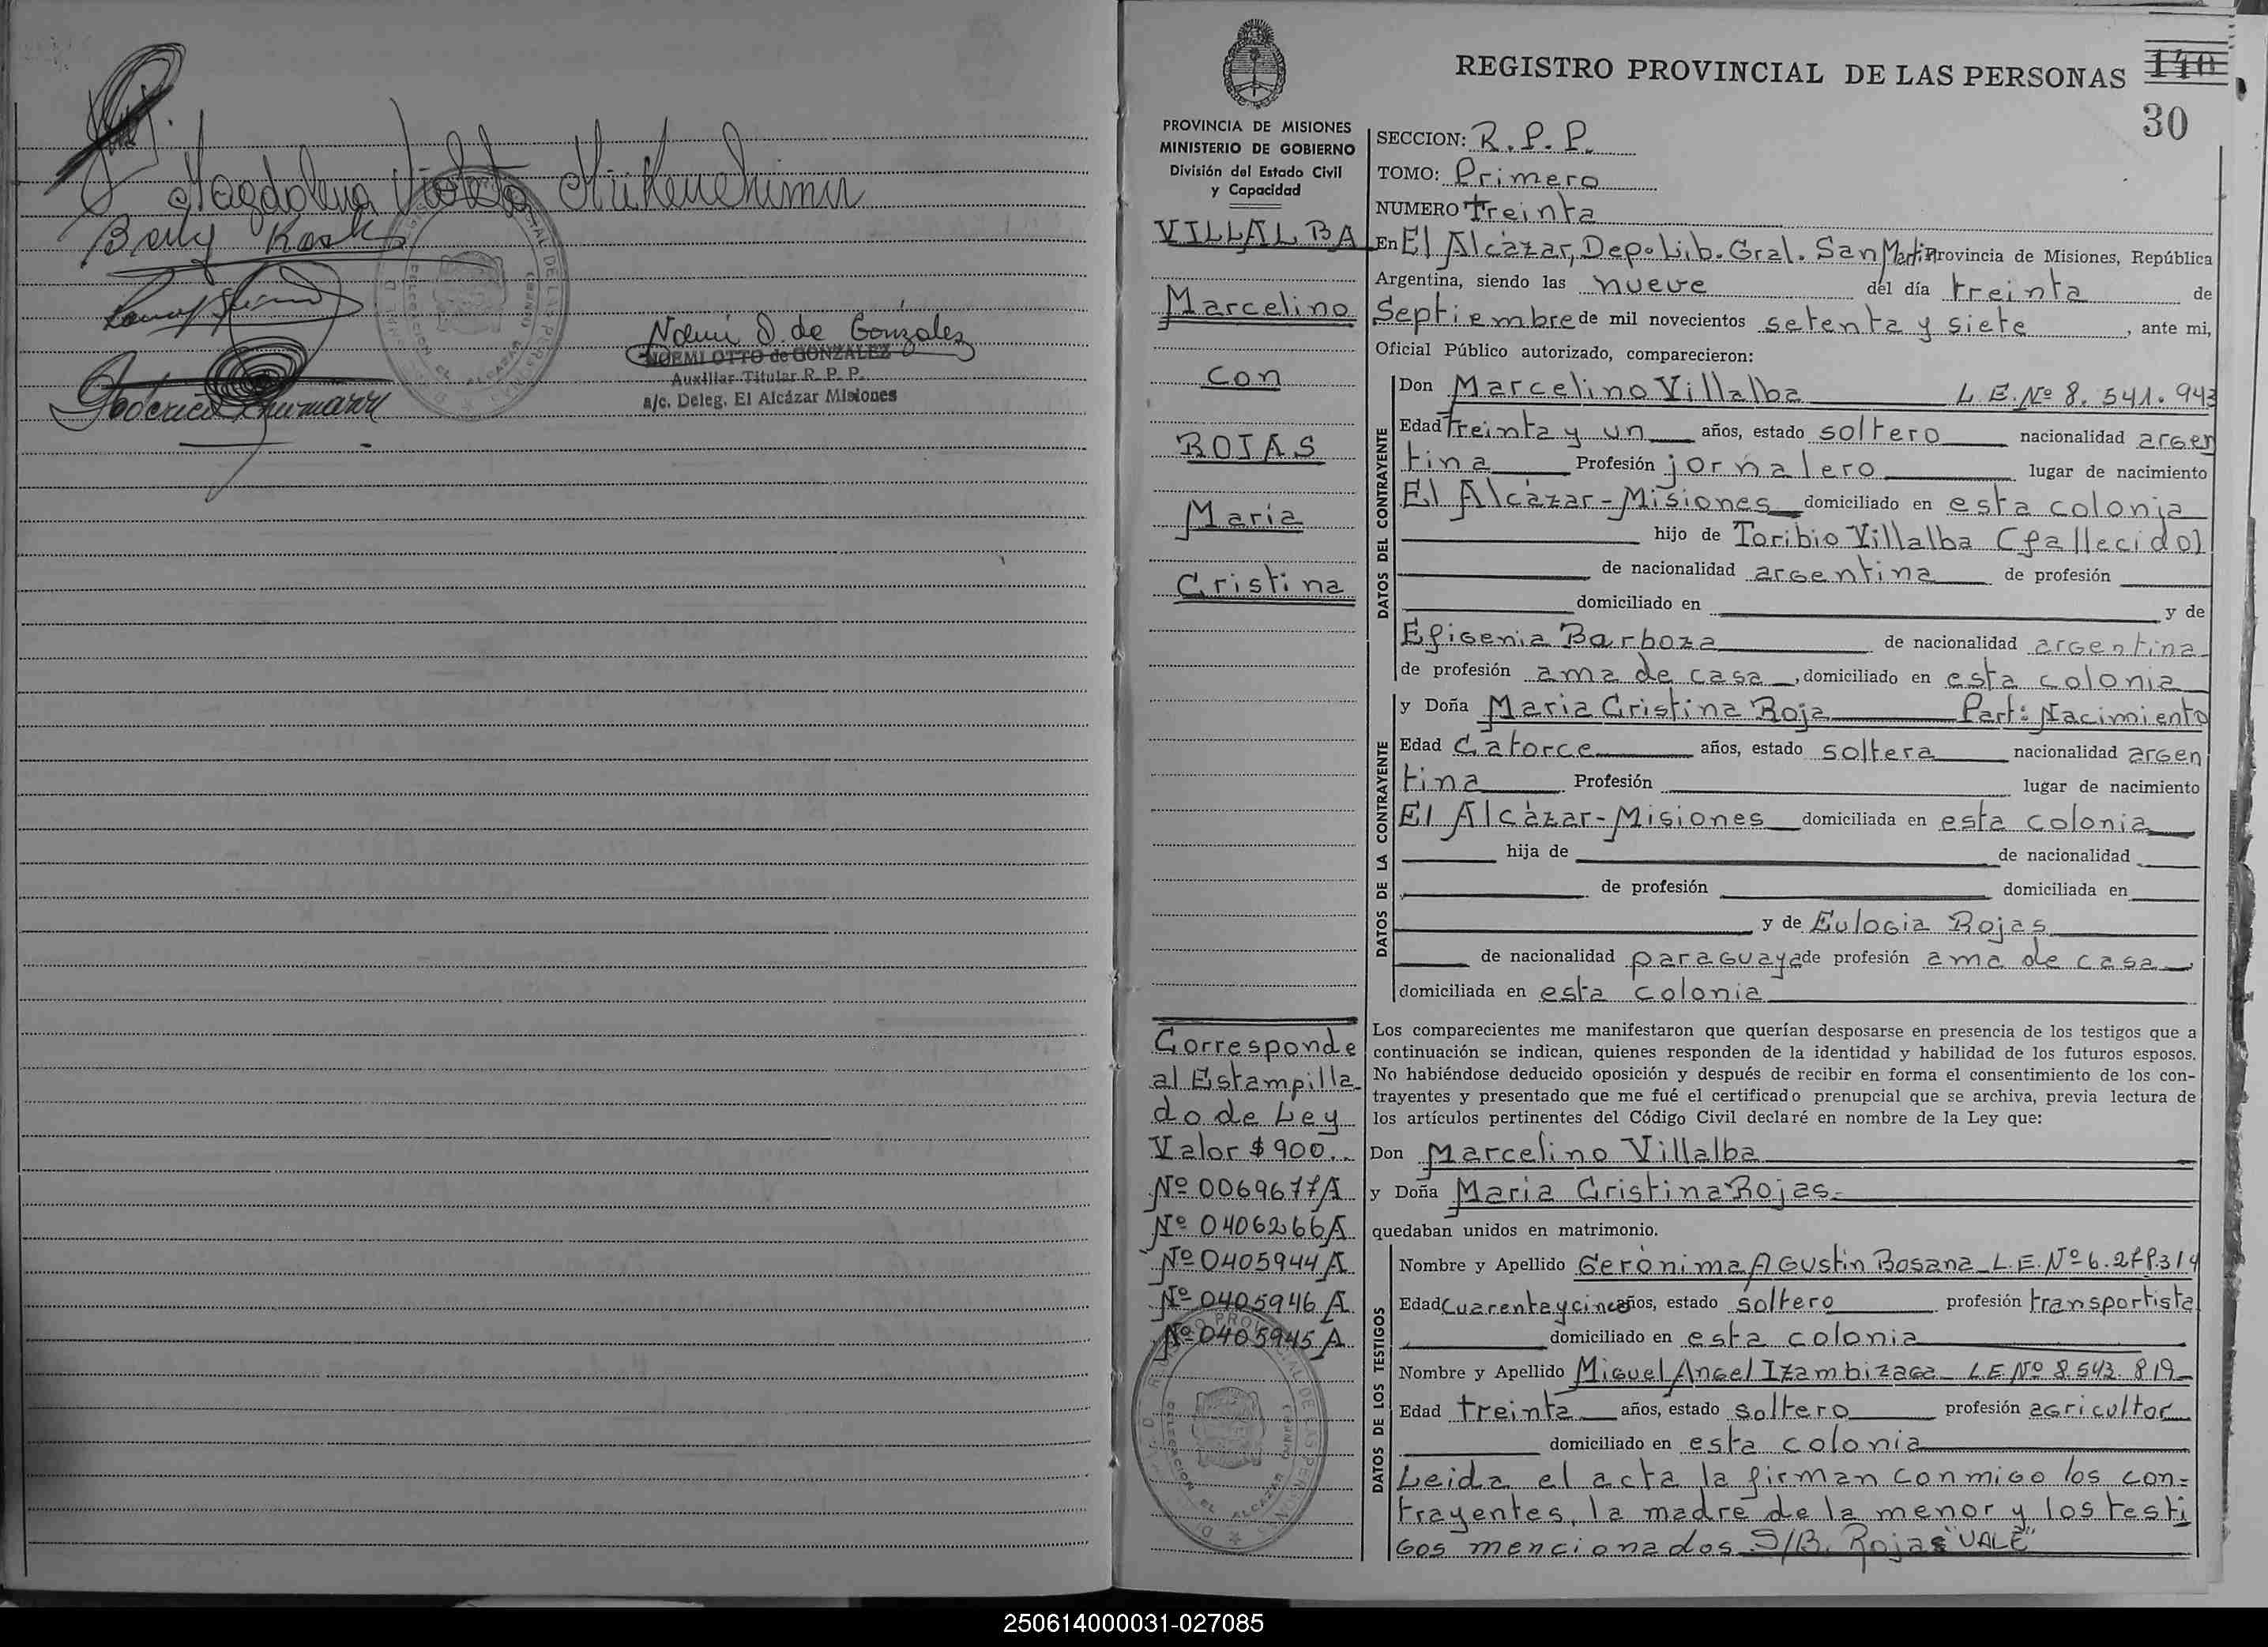 Magdalena Violeta
Noemi O. de González
NOEMI OTTO de GONZALEZ
Auxiliar Titular R. P. P.
a/c. Deleg. El Alcázar Misiones
Federico
REGISTRO PROVINCIAL DE LAS PERSONAS 140
30
PROVINCIA DE MISIONES
MINISTERIO DE GOBIERNO
División del Estado Civil
y Capacidad
VILLALBA
Marcelino
con
ROJAS
Maria
Cristina
Corresponde
al Estampilla-
do de Ley
Valor $ 900..
Nº 0069677A
Nº 0406266A
Nº 0405944A
Nº 0405946 A
Nº 0405945 A
SECCION: R. P. P.
TOMO: Primero
NUMERO treinta
En El Alcàzar, Dep. Lib. Gral. San Martin Provincia de Misiones, República
Argentina, siendo las nueve del día treinta de
Septiembre de mil novecientos setenta y siete, ante mi,
Oficial Público autorizado, comparecieron:
DATOS DEL CONTRAYENTE
Don Marcelino Villalba L.E.Nº 8.541.943
Edad Treinta y un años, estado soltero nacionalidad argen
tina Profesión jornalero lugar de nacimiento
El Alcàzar-Misiones domiciliado en esta colonia
hijo de Toribio Villalba (fallecido)
de nacionalidad argentina de profesión
domiciliado en y de
Efigenia Barboza de nacionalidad argentina
de profesión ama de casa, domiciliado en esta colonia
DATOS DE LA CONTRAYENTE
y Doña Maria Cristina Roja Part: Nacimiento
Edad Catorce años, estado soltera nacionalidad argen
tina Profesión lugar de nacimiento
El Alcàzar-Misiones domiciliada en esta colonia
hija de de nacionalidad
de profesión domiciliada en
y de Eulogia Rojas
de nacionalidad paraguaya de profesión ama de casa,
domiciliada en esta colonia
Los comparecientes me manifestaron que querían desposarse en presencia de los testigos que a
continuación se indican, quienes responden de la identidad y habilidad de los futuros esposos.
No habiéndose deducido oposición y después de recibir en forma el consentimiento de los con-
trayentes y presentado que me fué el certificado prenupcial que se archiva, previa lectura de
los artículos pertinentes del Código Civil declaré en nombre de la Ley que:
Don Marcelino Villalba
y Doña Maria Cristina Rojas.-
quedaban unidos en matrimonio.
DATOS DE LOS TESTIGOS
Nombre y Apellido Gerònima Agustin Bosana L.E. Nº
Edad Cuarenta y cinco años, estado soltero profesión transportista
domiciliado en esta colonia
Nombre y Apellido Miguel Angel Izambizaga L.E. Nº 8.543.819
Edad treinta años, estado soltero profesión agricultor
domiciliado en esta colonia
Leida el acta la firman conmigo los con=
trayentes, la madre de la menor y los testi
gos mencionados S/B. Rojas "VALE"
250614000031-027085